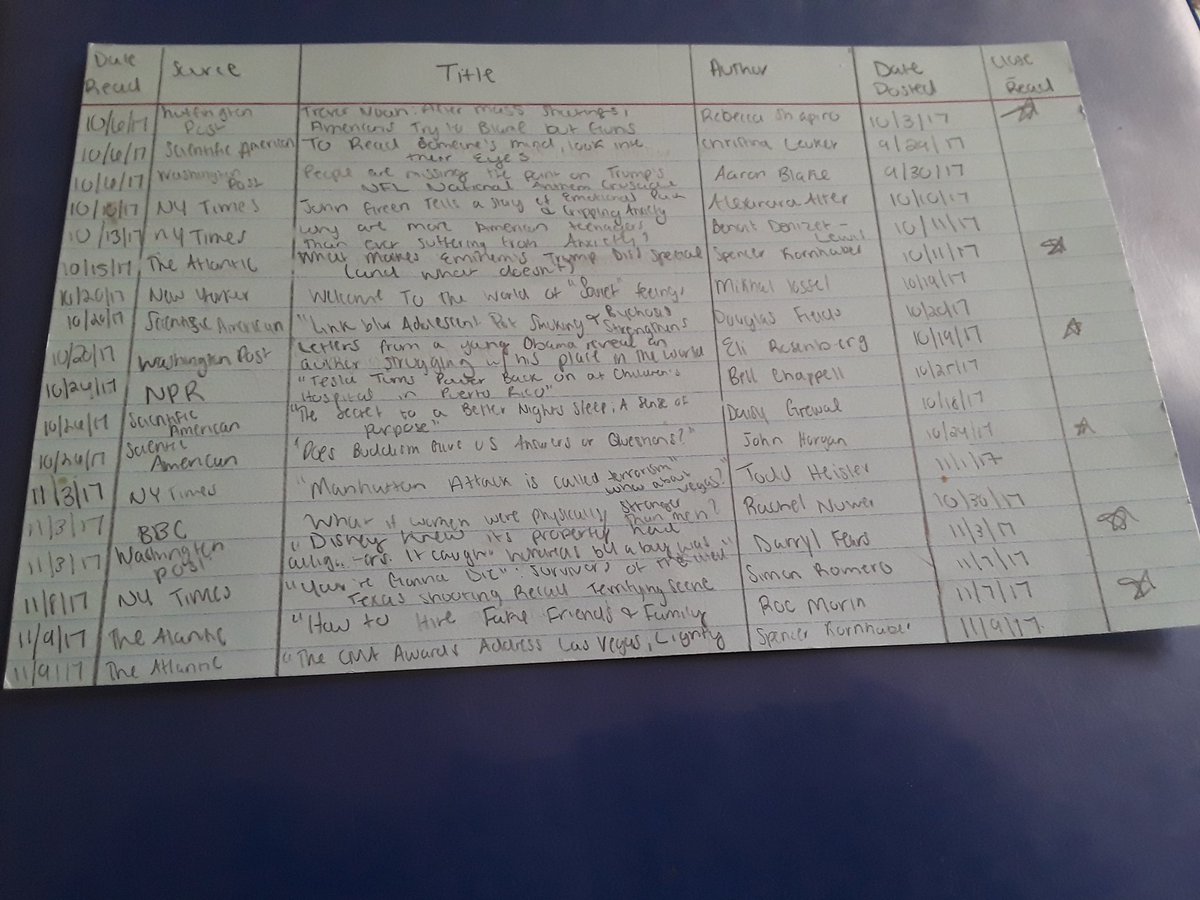 Date Read Source Title Author Date Posted Read
10/6/17 Huffington Post Trever Noah: After Mass Shootings, Americans Try to Blame but Guns Rebecca Shapiro 10/3/17
10/6/17 Scientific American To Read Someone's mind, look into their Eyes Christina Leuker 9/29/17
10/6/17 Washington Post People are missing the point on Trump's NFL National Anthem Crusade Aaron Blake 9/30/17
10/10/17 NY Times John Green Tells a Story of Emotional Pain & Gripping Anxity Alexandra Alter 10/10/17
10/13/17 NY Times why are more American teenagers Than ever suffering from Anxiety? Benoit Denizet-Lewis 10/11/17
10/15/17 The Atlantic What makes Eminem's Trump Diss Special (and what doesn't) Spencer Kornhaber 10/11/17
10/20/17 New Yorker Welcome To the world of "Soviet" feelings Mikhail Iossel 10/19/17
10/20/17 Scientific American "Link b/w Adolescent Pot Smoking & Psychosis Strengthens Douglas Fields 10/20/17
10/20/17 Washington Post Letters from a young Obama reveal an author struggling w/ his place in the world Eli Rosenberg 10/19/17
10/24/17 NPR "Tesla Turns Power Back on at Children's Hospital in Puerto Rico" Bill Chappell 10/25/17
10/26/17 Scientific American "The Secret to a Better Nights Sleep: A Sense of purpose" Daisy Grewal 10/16/17
10/26/17 American "Does Buddism Give US Answers or Questions?" John Horgan 10/24/17
11/3/17 NY Times "Manhattan Attack is called terrorism" what about vegas?" Todd Heisler 11/1/17
11/3/17 BBC What if women were physically stronger Than men? Rachel Nuwer 10/30/17
11/3/17 Washington post "Disney knew its property had allig-ors. It caught whereas by a boy was Darryl Fears 11/3/17
11/8/17 NY Times "You're Gonna Die": Survivors of the Texas shooting Recall Terrifying Scene Simon Romero 11/7/17
11/9/17 The Alantic "How to Hire Fake Friends & Family Roc Morin 11/7/17
11/9/17 The Atlantic "The CMA Awards Address Las Vegas, Lightly Spencer Kornhaber 11/9/17